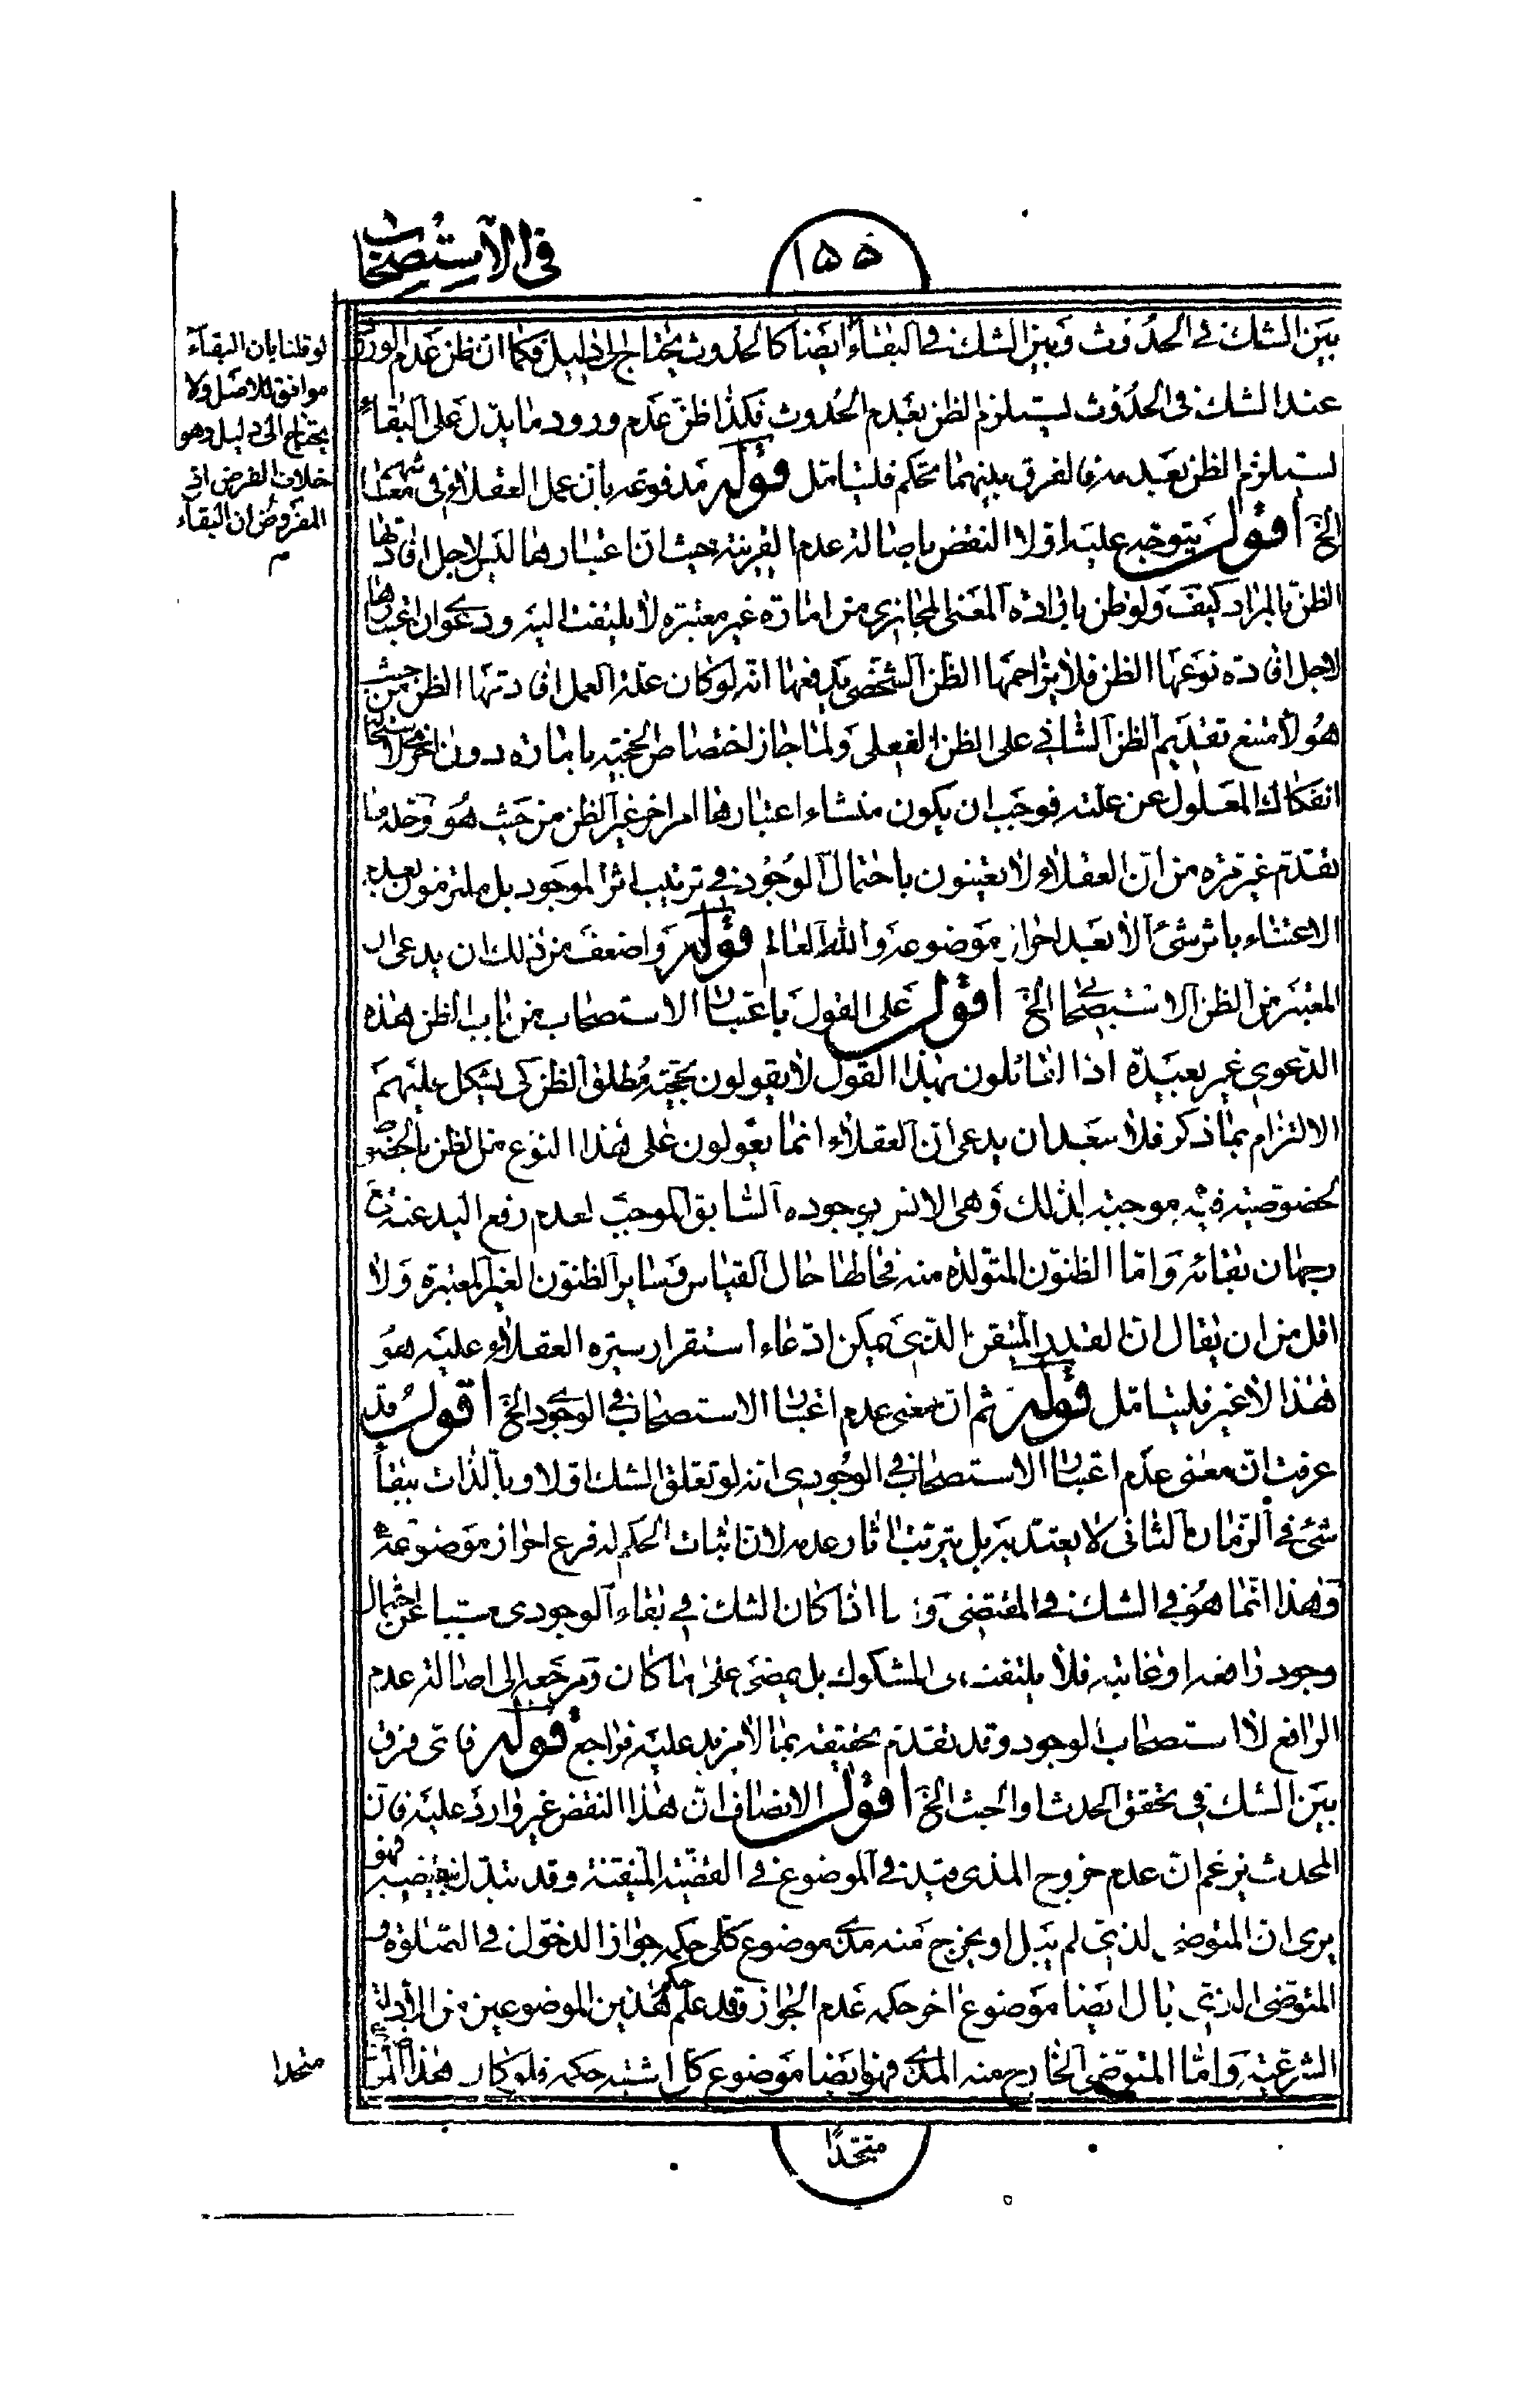 في الاستصحاب
١٥٥
بين الشك في الحدوث وبين الشك في البقاء ايضا كالحدوث يحتاج الى دليل فكما ان ظن عدم الورود
عند الشك في الحدوث يستلزم الظن بعدم الحدوث فكذا ظن عدم ورود ما يدل على البقاء
يستلزم الظن بعدمه فالفرق بينهما تحكم فليتامل قوله مدفوعه بان عمل العقلاء في
الخ اقول يتوجه عليه اولا النقض باصالة عدم القرينة حيث ان اعتبارها ليس لاجل افادتها
الظن بالمراد كيف ولو ظن بارادة المعنى المجازي من امارة غير معتبرة لا يلتفت اليه ودعوى ان اعتبارها
لاجل افادة نوعها الظن فلا يزاحمها الظن الشخصي يدفعها انه لو كان علة العمل افادتها الظن من حيث
هو لامتنع تقديم الظن الشاني على الظن الفعلي ولما جاز اختصاص الحجية بامارة دون اخرى لاستحالة
انفكاك المعلول عن علته فوجب ان يكون منشاء اعتبارها امرا خر غير الظن من حيث هو وحله ما
تقدم غير مرة من ان العقلاء لا يعتنون باحتمال الوجود في ترتيب اثر الموجود بل ملتزمون بعدم
الاعتناء باثر شئ الا بعد احراز موضوعه والله العالم قوله واضعف من ذلك ان يدعى ان
المعتبر من الظن الاستصحابي الخ اقول على القول باعتبار الاستصحاب من باب الظن هذه
الدعوى غير بعيدة اذ القائلون بهذا القول لا يقولون بحجية مطلق الظن كى يشكل عليهم
الالتزام بما ذكر فلا يبعد ان يدعى ان العقلاء انما يعولون على هذا النوع من الظن بالخصوص
لخصوصية فيه موجبة لذلك وهي الانس بوجوده السابق الموجب لعدم رفع اليد عنه مع
رجحان بقائه واما الظنون المتولدة منه فحالها حال القياس وساير الظنون الغير المعتبرة ولا
اقل من ان يقال ان القدر المتيقن الذي يمكن ادعاء استقرار سيرة العقلاء عليه هو
هذا لا غير فليتامل قوله ثم ان معنى عدم اعتبار الاستصحاب في الوجودي الخ اقول قد
عرفت ان معنى عدم اعتبار الاستصحاب في الوجودي انه لو تعلق الشك اولا وبالذات ببقاء
شئ في الزمان الثاني لا يعتد به بل يترتب اثار عدمه لان اثبات الحكم له فرع احراز موضوعه
وهذا انما هو في الشك في المقتضى و اما اذا كان الشك في بقاء الوجودي مسببا عن احتمال
وجود رافعه او غايته فلا يلتفت الى المشكوك بل يمضى على ما كان ومرجعه الى اصالة عدم
الرافع لا استصحاب الوجود وقد تقدم تحقيقه بما لا مزيد عليه فراجع قوله فاى فرق
بين الشك في تحقق الحدث او الخبث الخ اقول الانصاف ان هذا النقض غير وارد عليه فان
المحدث يزعم ان عدم خروج المذى قيد في الموضوع في القضية المتيقنة وقد تبدل بنقيضه فهو
يرى ان المتوضى الذي لم يبل او يخرج منه مذى موضوع كلى حكمه جواز الدخول في الصلوة و
المتوضى الذي بال ايضا موضوع اخر حكمه عدم الجواز وقد علم حكم هذين الموضوعين من الادلة
الشرعية واما المتوضى الخارج منه المذى فهو ايضا موضوع كلى اشتبه حكمه فلو كان هذا الموضوع
متحدا
متحدا
لو قلنا بان البقاء
موافق للاصل ولا
يحتاج الى دليل وهو
خلاف الفرض اذ
المفروض ان البقاء
م